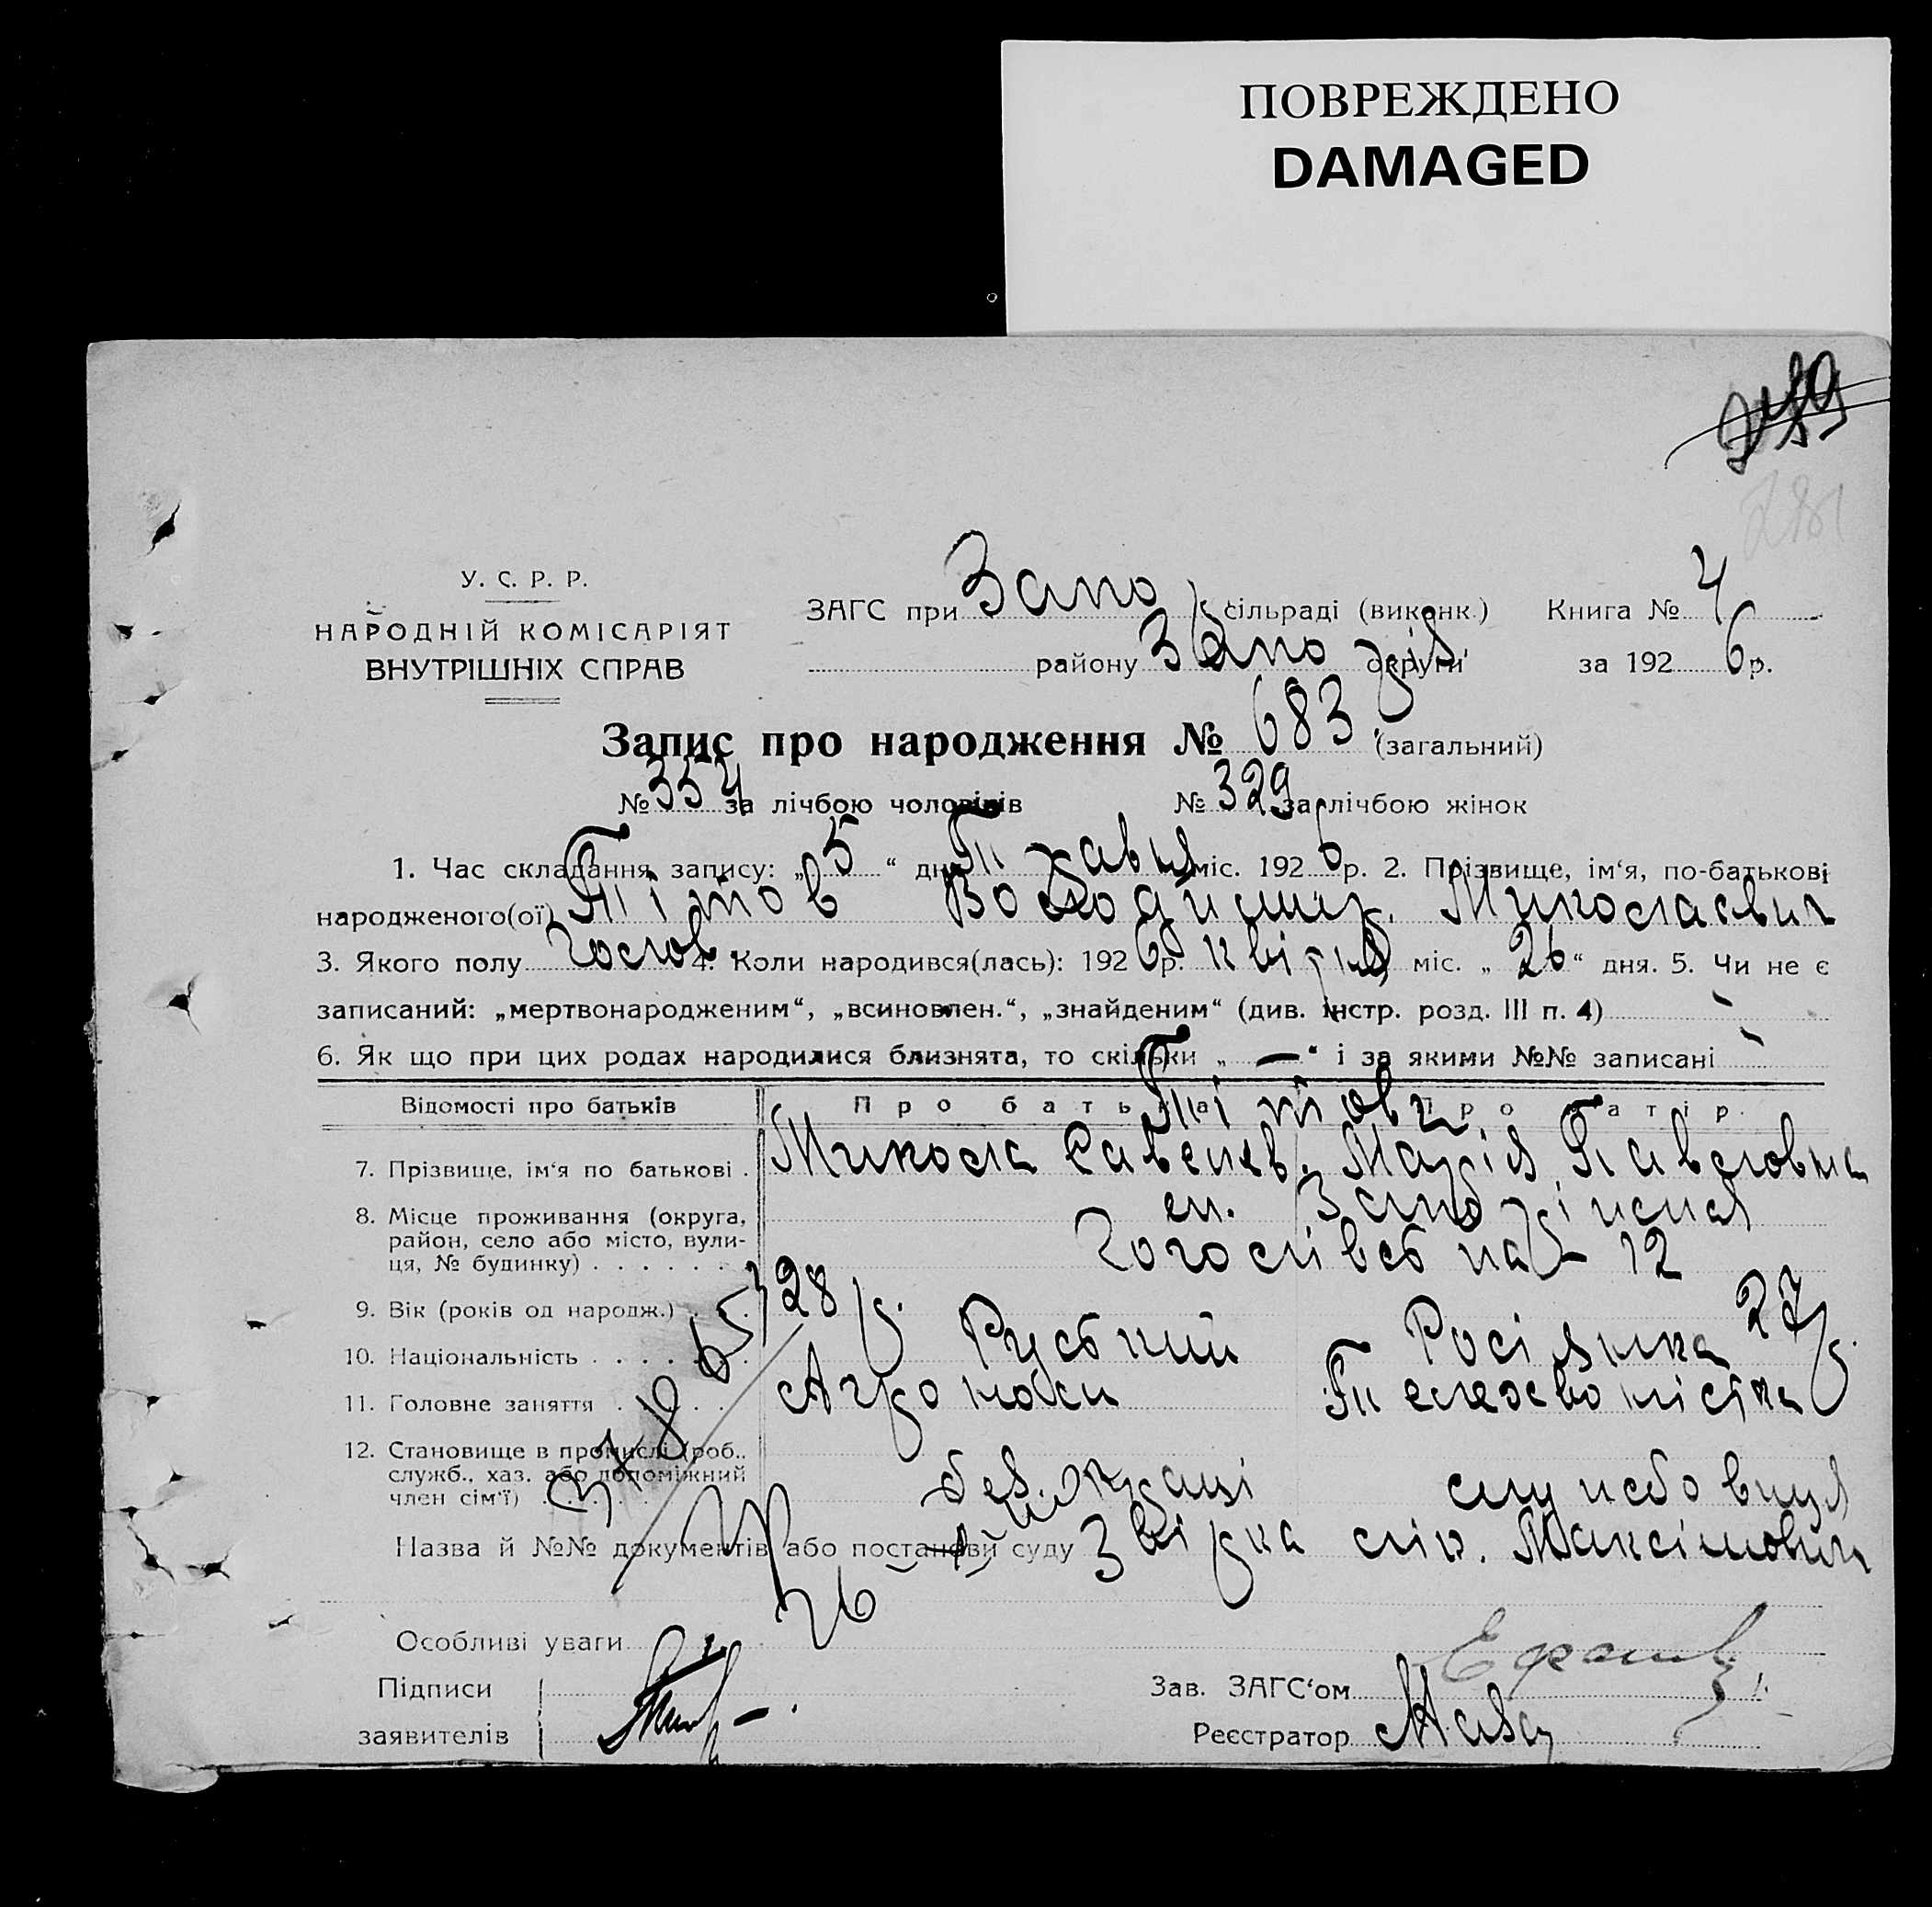 ПОВРЕЖДЕНО
DAMAGED
У. С. Р. Р.
НАРОДНІЙ КОМІСАРІЯТ
ВНУТРІШНІХ СПРАВ
ЗАГС при Запо сільраді (виконк.) Книга № 4
району Запо округи за 1926 р.
Запис про народження № 683 (загальний)
№ 354 за лічбою чоловіків № 329 за лічбою жінок
1. Час складання запису: „5“ дня Травня міс. 1926 р. 2. Прізвище, ім‘я, по-батькові
народженого(ої) Тітов Володимир. Миколаєвич
3. Якого полу чолов. 4. Коли народився(лась): 1926 р. квітня міс. „26“ дня. 5. Чи не є
записаний: „мертвонародженим“, „всиновлен.“, „знайденим“ (див. інстр. розд. III п. 4)
6. Як що при цих родах народилися близнята, то скільки „—“ і за якими №№ записані
Відомості про батьків Про батька Про матір.
Тітови
7. Прізвище, ім‘я по батькові . Микола Савельев. Марія Павловна
8. Місце проживання (округа,
район, село або місто, вули-
ця, № будинку) . . . . . .
12
9. Вік (років од народж.) . . . 28 р. 27 р.
10. Національність . . . . . . Руський Росіянка
11. Головне заняття . . . . . Агроном Телефоністка
12. Становище в промислі (роб.,
служб., хаз. або допоміжний
член сім‘ї) . . . . . . без праці службовиця
Назва й №№ документів або постанови суду Звірка лік. Максімович
Особливі уваги
Підписи
заявителів
Зав. ЗАГС‘ом
Реєстратор